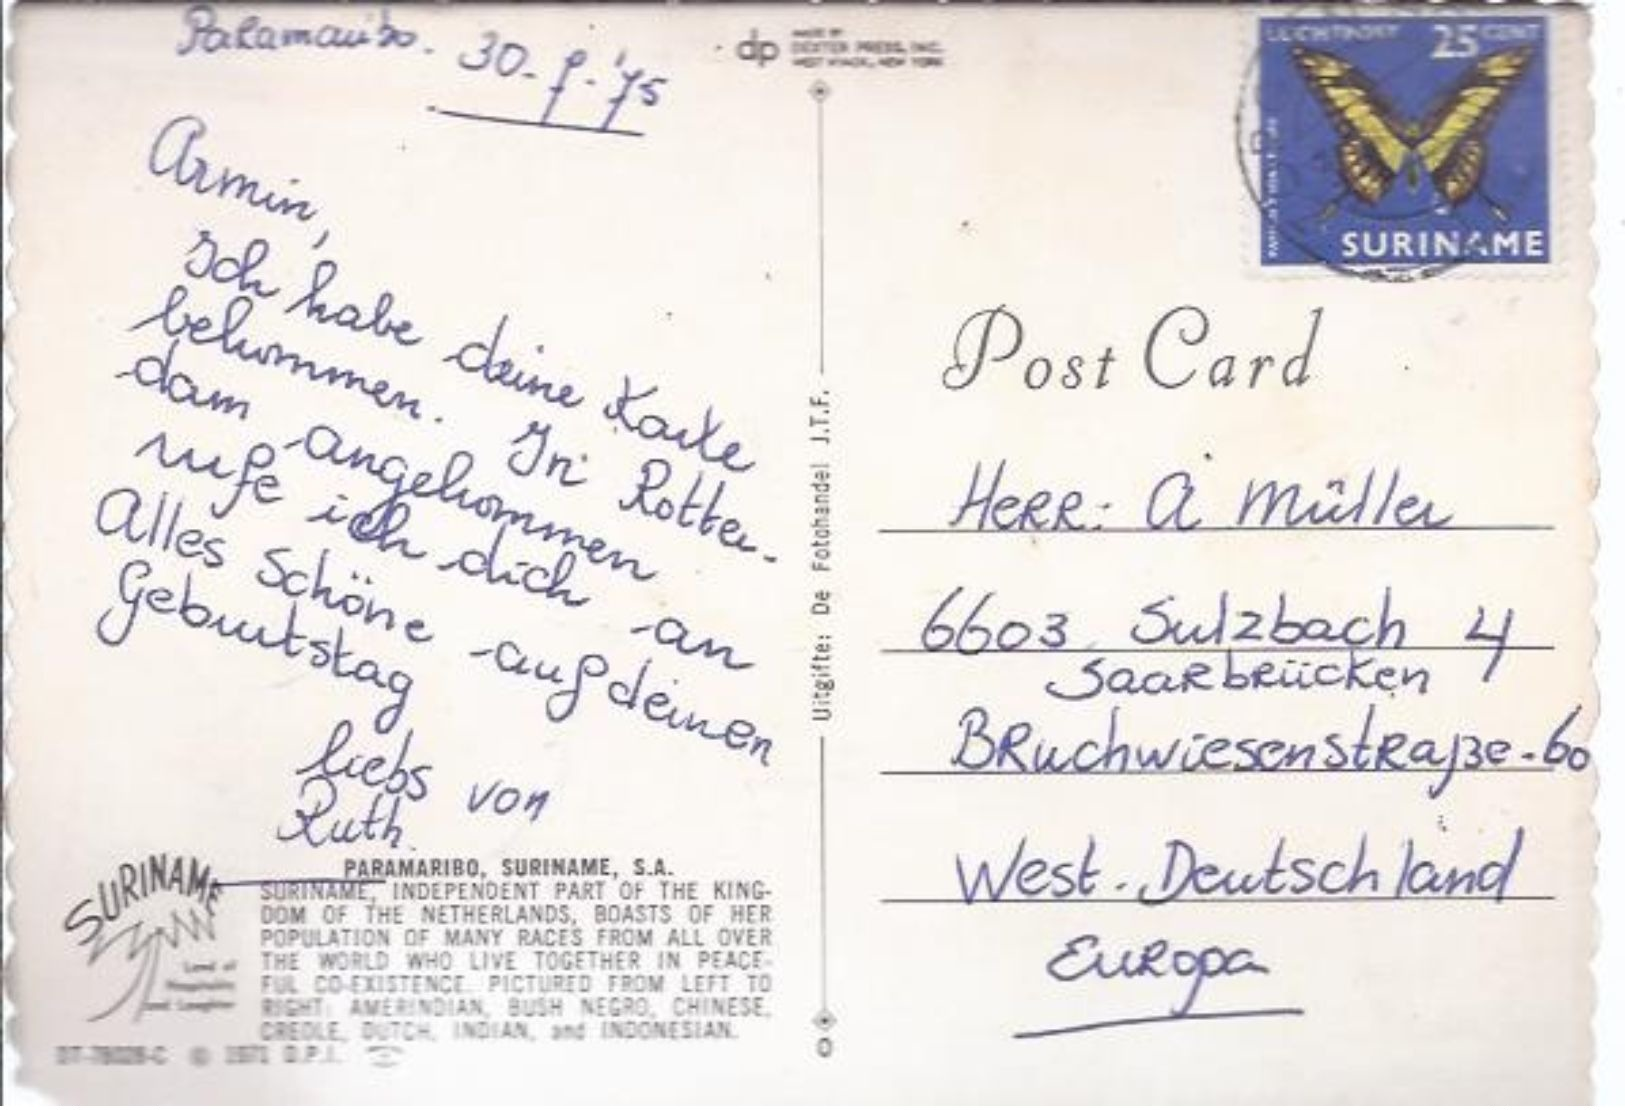 Paramaribo. 30-9-'75
Armin,
Ich habe deine Karte
bekommen. In Rotter-
dam angekommen
rufe ich dich an
Alles Schöne auf deinen
Geburtstag
liebs von
Ruth.
SURINAME
Land of
and Laughter
PARAMARIBO, SURINAME, S.A.
SURINAME, INDEPENDENT PART OF THE KING-
DOM OF THE NETHERLANDS, BOASTS OF HER
POPULATION OF MANY RACES FROM ALL OVER
THE WORLD WHO LIVE TOGETHER IN PEACE-
FUL CO-EXISTENCE. PICTURED FROM LEFT TO
RIGHT: AMERINDIAN, BUSH NEGRO, CHINESE,
CREOLE, DUTCH, INDIAN, and INDONESIAN.
© 1971 D.P.I.
dp
MADE BY
DEXTER PRESS, INC.
WEST NYACK, NEW YORK
Uitgifte: De Fotohandel J.T.F.
LUCHTPOST 25 CENT
SURINAME
Post Card
HERR: A Müller
6603 Sulzbach 4
Saarbrücken
BRuchwiesenstRaße-60
West-Deutschland
EuRopa